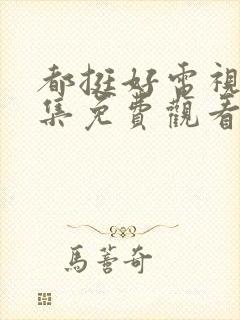 都挺好電視
集免費觀看
馬薈奇